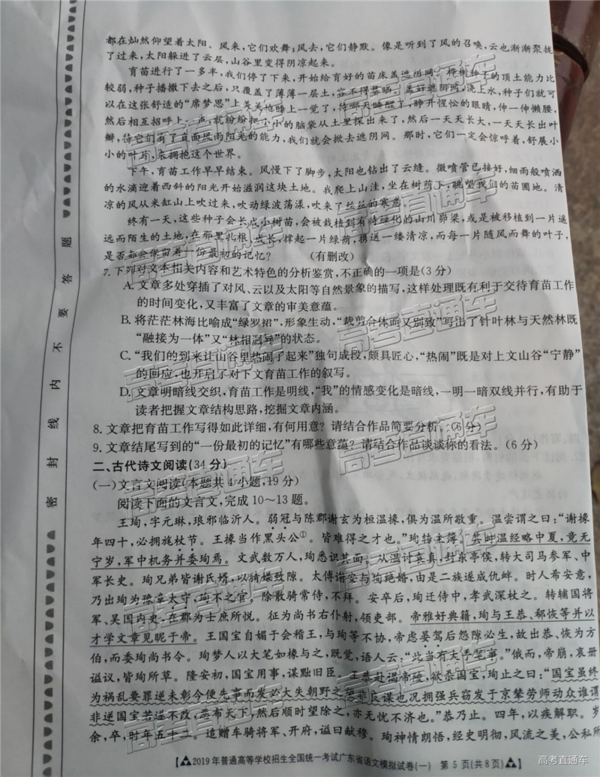 都在灿然仰望着太阳。风来，它们欢舞；风去，它们静默。像是听到了风的召唤，云也渐渐聚拢
了过来，太阳躲进了云层，山谷里变得阴凉起来。
育苗进行了一多半，我们停下了来，开始给育好的苗床盖遮阳网。
较弱，种子播撒下去之后，只覆盖了薄薄一层土，浇上水，种子们就可
以在这张舒适的“席梦思”上美美地睡上一觉了，睁开惺忪的眼睛，伸一伸懒腰，
然后相互招呼上一声，就纷纷把小小的脑袋从土里探出来了，然后一天天长大，一天天长出叶
瓣，待它们有了直面炽热阳光的能力，我们就会掀去遮阴网。那时，它们一定会惊呼着，舒展小
小的叶耳，去拥抱这个世界。
下午，育苗工作早早结束。风慢下了脚步，太阳也钻出了云缝。微喷管已接好，细雨般喷洒
的水滴迎着西斜的阳光开始滋润这块土地。我爬上山洼，坐在树荫下，眺望我们的苗圃地。清
凉的风从来缸山上吹过来，吹动绿波荡漾，吹来了丝丝的寒意。
终有一天，这些种子会长成小树苗，会被栽植到有待绿化的山川峁梁，或是被移植到一片遥
远而陌生的土地，在那里扎根、成长，撑起一片绿荫，携送一缕清凉，而每一片随风而舞的叶子，
是否都会保留着一份最初的记忆？（有删改）
7.下列对文本相关内容和艺术特色的分析鉴赏，不正确的一项是(3分)
A.文章多处穿插了对风、云以及太阳等自然景象的描写，这样处理既有利于交待育苗工作
的时间变化，又丰富了文章的审美意蕴。
B.将茫茫林海比喻成“绿罗裙”，形象生动，“裁剪合体而又别致”写出了针叶林与天然林既
“融接为一体”又“林相迥异”的状态。
C.“我们的到来让山谷里热闹了起来”独句成段，颇具匠心，“热闹”既是对上文山谷“宁静”
的回应，也开启了对下文育苗工作的叙写。
D.文章明暗线交织，育苗工作是明线，“我”的情感变化是暗线，一明一暗双线并行，有助于
读者把握文章结构思路，挖掘文章内涵。
8.文章把育苗工作写得如此详细，有何用意？请结合作品简要分析。(6分)
9.文章结尾写到的“一份最初的记忆”有哪些意蕴？请结合作品谈谈你的看法。(6分)
二、古代诗文阅读(34分)
(一)文言文阅读(本题共4小题，19分)
阅读下面的文言文，完成10～13题。
王珣，字元琳，琅邪临沂人。弱冠与陈郡谢玄为桓温掾，俱为温所敬重。温尝谓之曰：“谢掾
年四十，必拥旄杖节。王掾当作黑头公①。皆难得之才也。”珣转主簿。时温经略中夏，竟无
宁岁，军中机务并委珣焉。文武数万人，珣悉识其面。从温讨袁真，封东亭侯，转大司马参军、中
军长史。珣兄弟皆谢氏婿，以猜嫌致隙。太傅谢安与珣绝婚，由是二族遂成仇衅。时人希安意，
乃出珣为豫章太守，珣不之官。除散骑常侍，不拜。安卒后，珣迁侍中，孝武深杖之。转辅国将
军、吴国内史，在郡为士庶所悦。征为尚书右仆射，领吏部。帝雅好典籍，珣与王恭、郗恢等并以
才学文章见昵于帝。王国宝自媚于会稽王，与珣等不协，帝虑晏驾后怨隙必生，故出恭、恢为方
伯，而委珣尚书令。珣梦人以大笔如椽与之，既觉，语人云：“此当有大手笔事。”俄而，帝崩，哀册
谥议，皆珣所草。隆安初，国宝用事，谋黜旧臣。王恭赴山陵，欲杀国宝，珣止之曰：“国宝虽终
为祸乱要罪逆未彰今便先事而发必大失朝野之望况拥强兵窃发于京辇谁谓
非逆国宝若遂不改恶布天下然后顺时望除之，亦无忧不济也。”恭乃止。四年，以疾解职。岁
余，卒，时年五十二。追赠车骑将军、开府，谥曰献穆。珣神情朗悟，经史明彻，风流之美，公私所
【2019年普通高等学校招生全国统一考试广东省语文模拟试卷(一) 第5页(共8页)】
密封线内不要答题
高考直通车